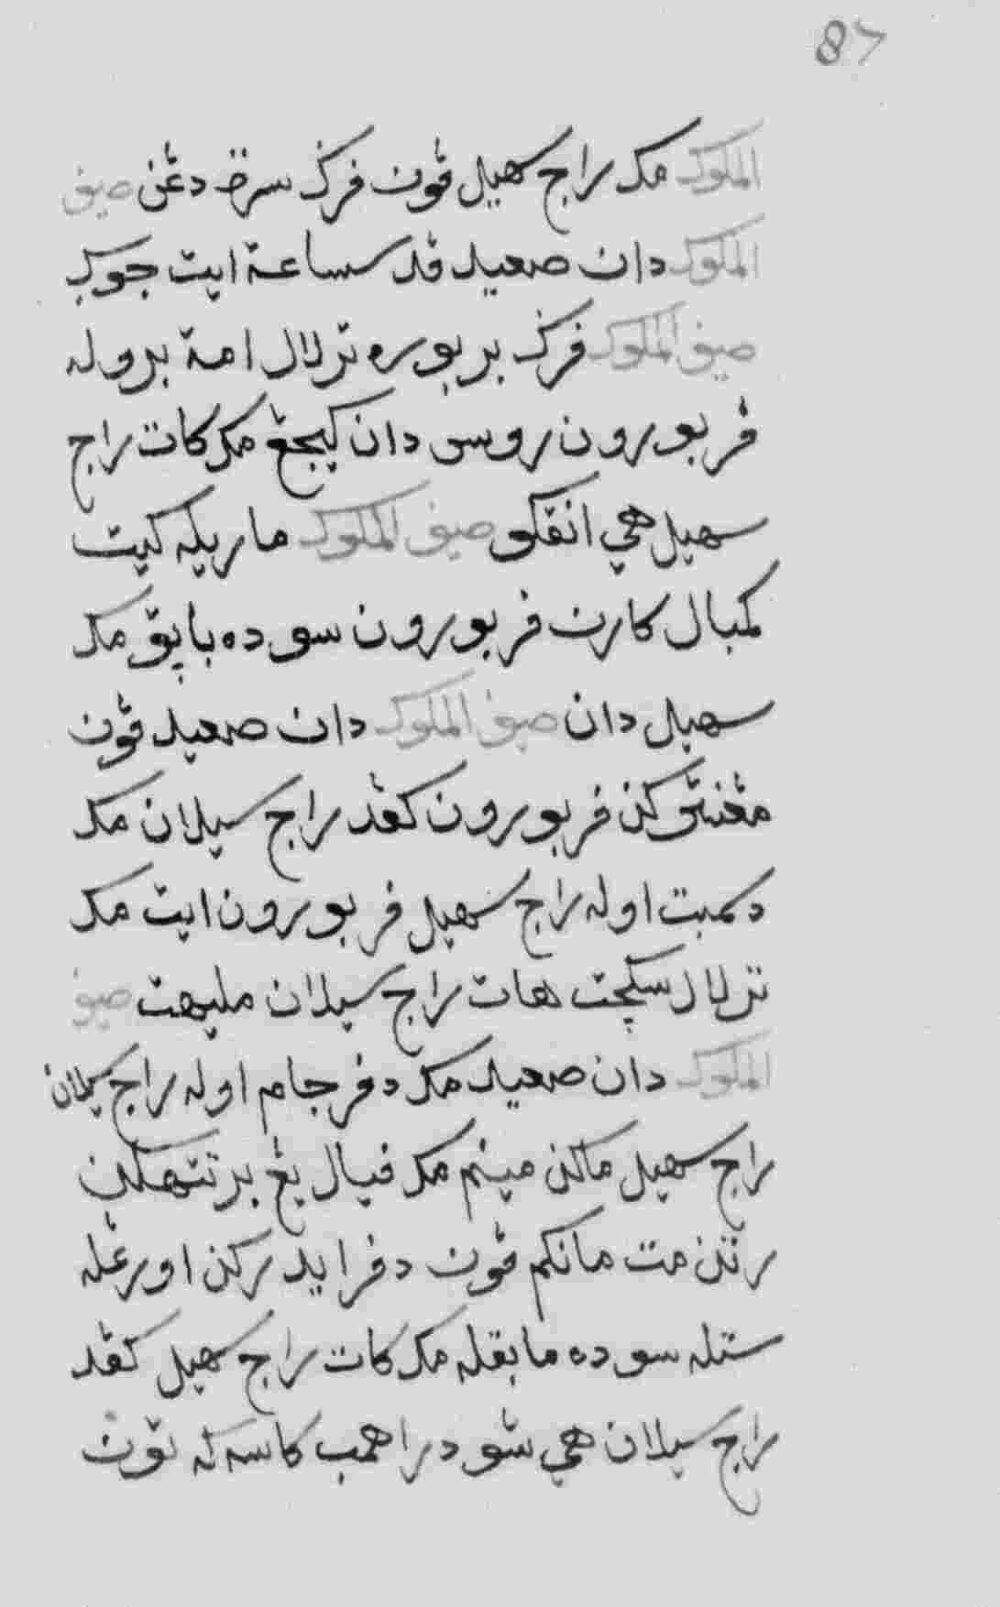 87
الملوك مک راج سهيل ڤون فرگ سرت دڠن صيف
الملوك دان صعيد ڤد سساعة ايت جوک
صيف الملوك فرگ بربوره ترلال امة بروله
ڤربورون روس دان کيجڠ مک کات راج
سهيل هي انقکو صيف الملوك ماريله کيت
کمبال کارن ڤربورون سوده باپق مک
سهيل دان صيف الملوك دان صعيد ڤون
مڠنترکن ڤربورون کڤد راج سيلان مک
دسمبت اوله راج سهيل ڤربورون ايت مک
ترلال سکچت هات راج سيلان مليهت صيف
الملوك دان صعيد مک دفرجام اوله راج سيلان
راج سهيل ماکن مينم مک ڤيال يڠ برتتهکن
رتن مت مانکم ڤون دڤرايدرکن اورڠله
ستله سوده مابقله مک کات راج سهيل کڤد
راج سيلان هي سودرا همب کاسيهله تون